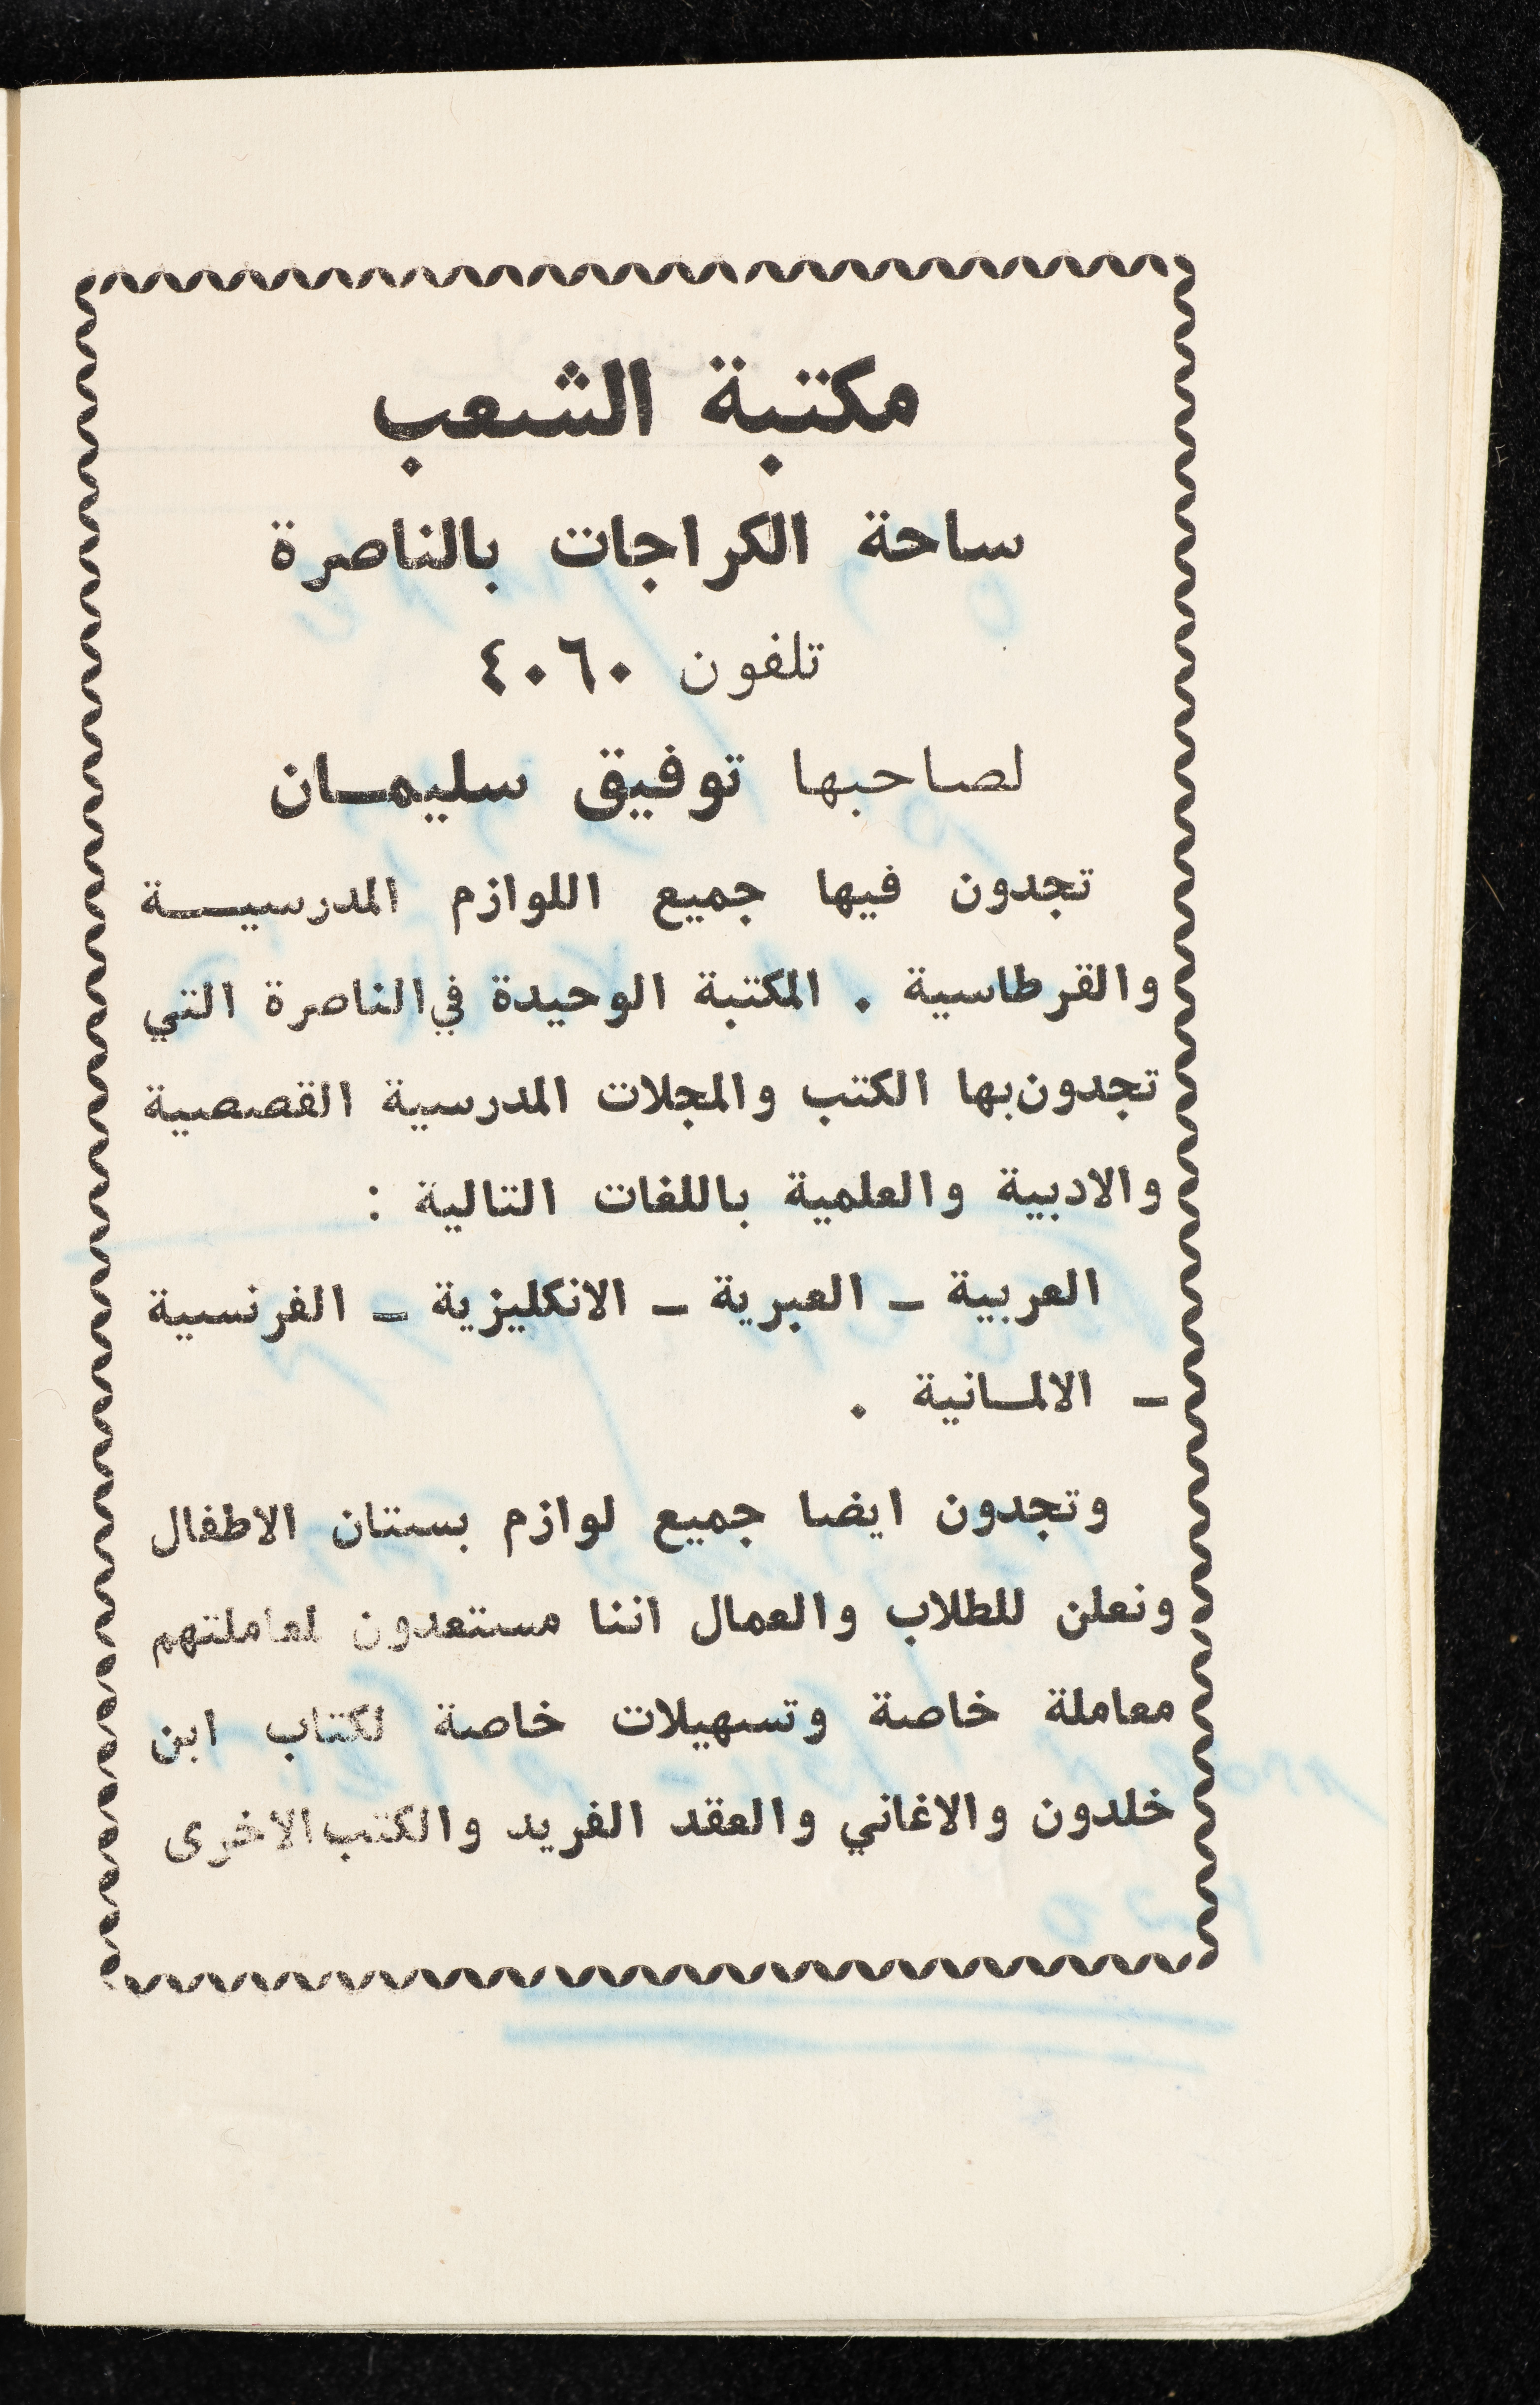 مكتبة الشعب
ساحة الكراجات بالناصرة
تلفون ٤٠٦٠
لصاحبها توفيق سليمـان
تجدون فيها جميع اللوازم المدرسيـــة
والقرطاسية . المكتبة الوحيدة في الناصرة التي
تجدون بها الكتب والمجلات المدرسية القصصية
والادبية والعلمية باللغات التالية :
العربية ــ العبرية ــ الانكليزية ــ الفرنسية
ــ الالمـانية .
وتجدون ايضا جميع لوازم بستان الاطفال
ونعلن للطلاب والعمال اننا مستعدون لمعاملتهم
معاملة خاصة وتسهيلات خاصة لكتاب ابن
خلدون والاغاني والعقد الفريد والكتب الاخرى